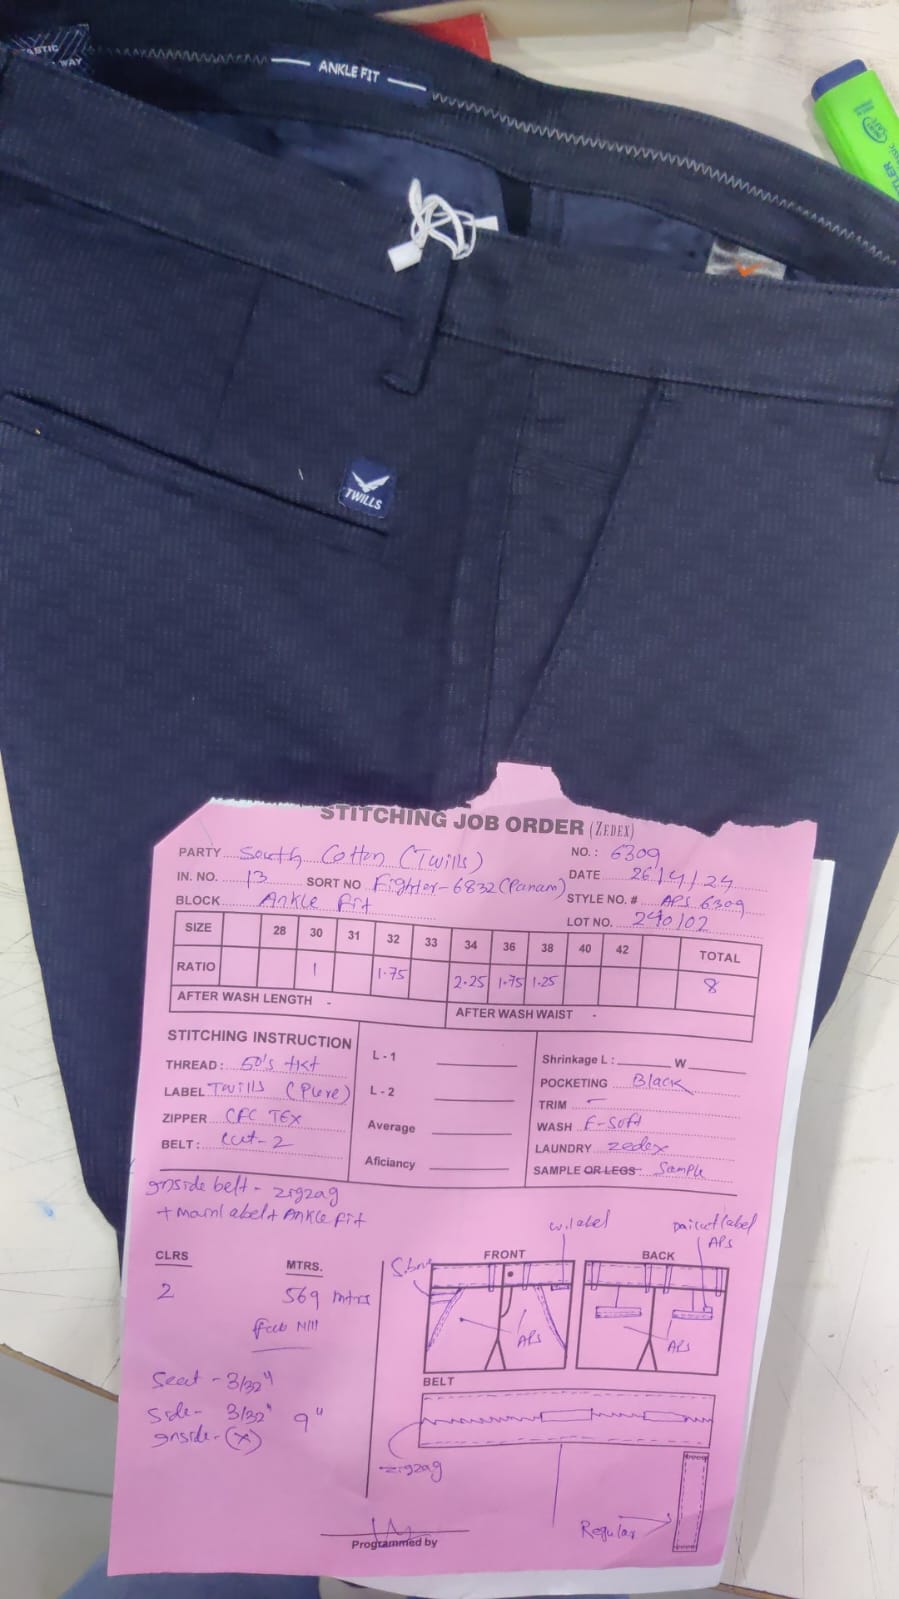 ASTIC
WAY
ANKLE FIT
TWILLS
STITCHING JOB ORDER (ZEDEX)
PARTY South Cotton (Twills) NO.: 6309
IN. NO. 13 SORT NO Fighter-6832 (Panam) DATE 26/4/24
BLOCK Ankle Fit STYLE NO. # APS 6309
LOT NO. 240102
SIZE 28 30 31 32 33 34 36 38 40 42 TOTAL
RATIO 1 1.75 2.25 1.75 1.25 8
AFTER WASH LENGTH - AFTER WASH WAIST -
STITCHING INSTRUCTION
THREAD: 50's tkt
LABEL Twills (Pure)
ZIPPER CFC TEX
BELT: cut-2
L-1
L-2
Average
Aficiancy
Shrinkage L: W
POCKETING Black
TRIM -
WASH F-Soft
LAUNDRY zedex
SAMPLE OR LEGS Sample
Inside belt - zigzag
+ mainlabel + Ankle fit
CLRS MTRS.
2 569 mtrs
fab Nill
Seat - 3/32"
Side - 3/32" 9"
Inside - (x)
w.label
label
APS
FRONT BACK
APS APS
BELT
zigzag
Regular
Programmed by